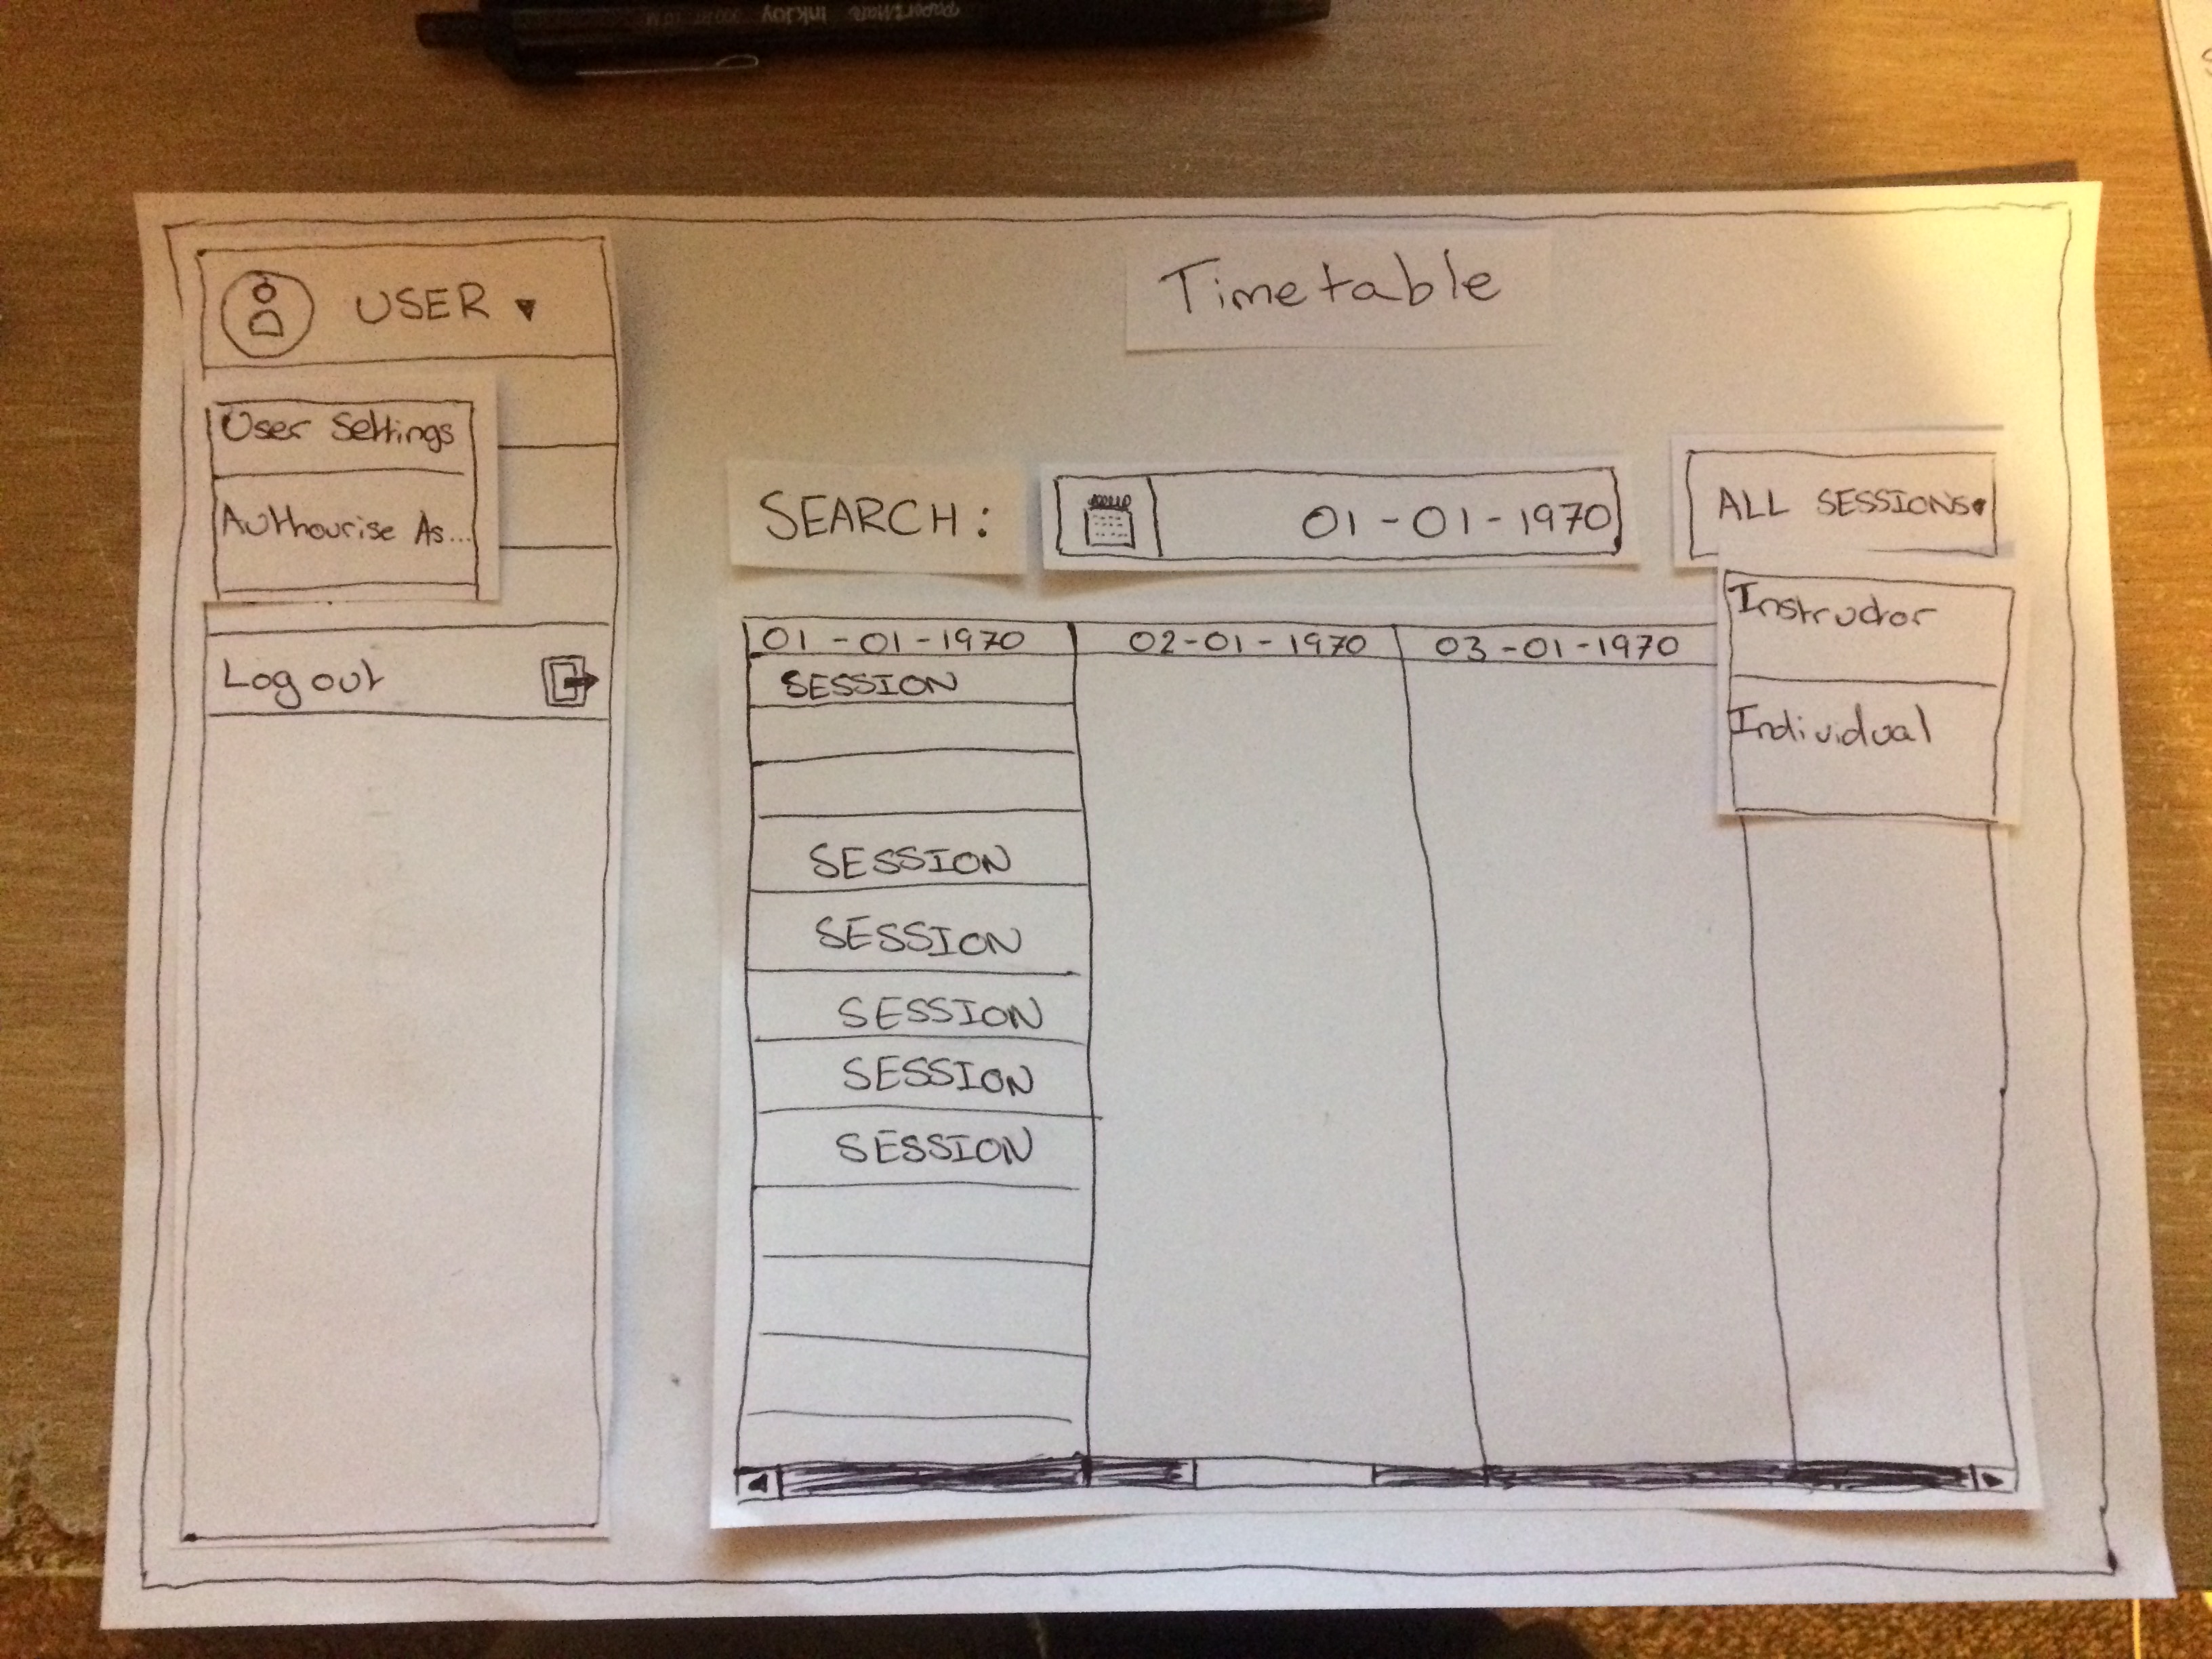 PaperMate InkJoy
USER
Timetable
User Settings
Authourise As...
SEARCH:
01-01-1970
ALL SESSIONS
Instructor
Individual
Log out
01-01-1970
02-01-1970
03-01-1970
SESSION
SESSION
SESSION
SESSION
SESSION
SESSION